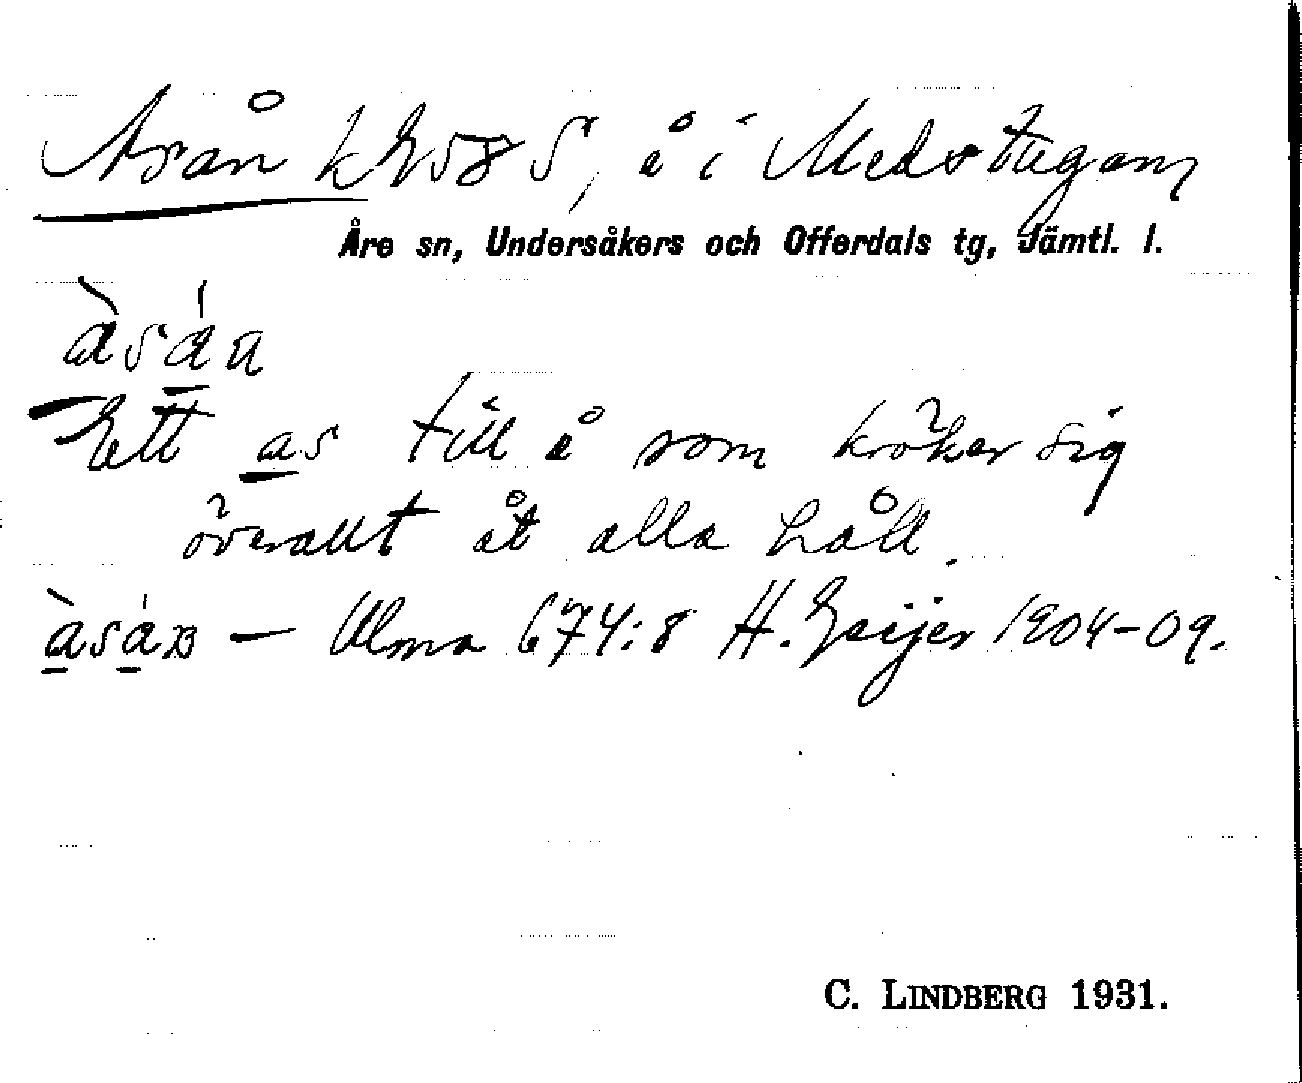 Asån k Ek 58 S, å i Medstugan
Åre sn, Undersåkers och Offerdals tg, Jämtl. l.
àsán
Ett as till å som kröker sig
överallt åt alla håll.
àsán — Ulma 674:8 H. Geijer 1904-09.
C. LINDBERG 1931.